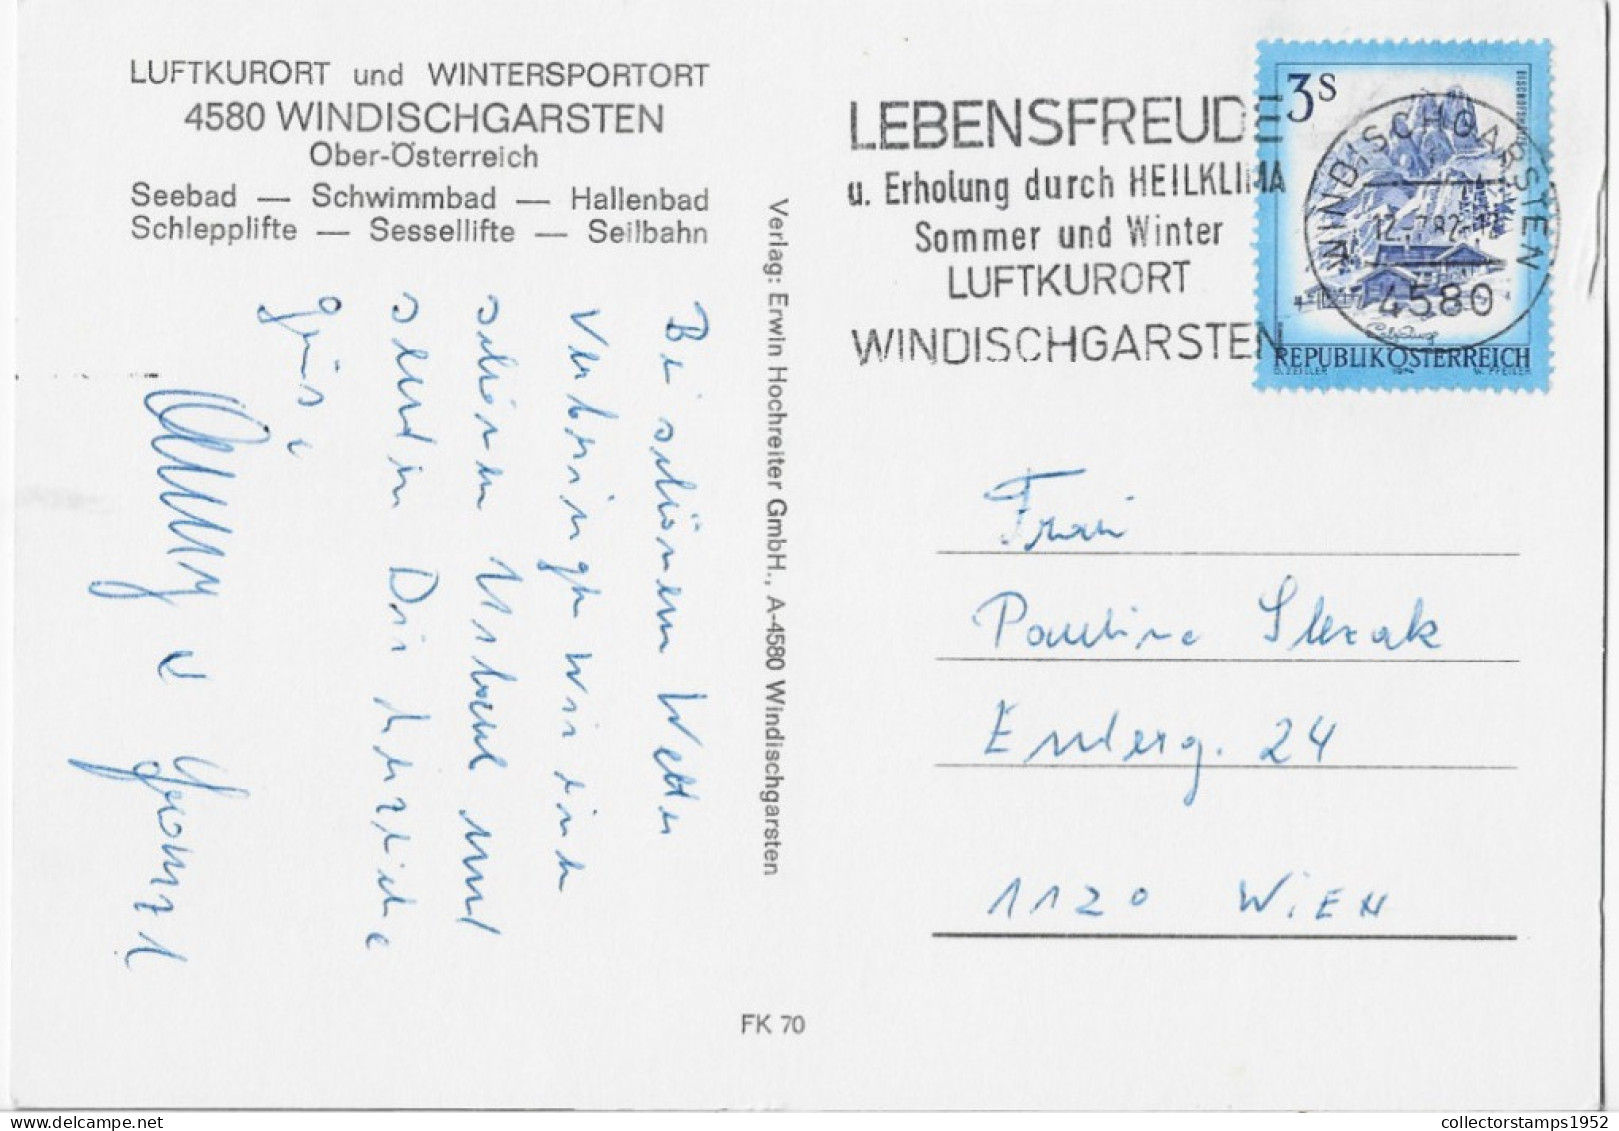 LUFTKURORT und WINTERSPORTORT
4580 WINDISCHGARSTEN
Ober-Österreich
Seebad — Schwimmbad — Hallenbad
Schlepplifte — Sessellifte — Seilbahn
Bei schönem Wetter
verbringen wir einen
schönen Urlaub und
senden Dir herzliche
Grüsse
Verlag: Erwin Hochreiter GmbH., A-4580 Windischgarsten
FK 70
LEBENSFREUDE
u. Erholung durch HEILKLIMA
Sommer und Winter
LUFTKURORT
WINDISCHGARSTEN
3S
WINDISCHGARSTEN
12.-7.82-12
4580
REPUBLIK ÖSTERREICH
O. ZEILLER
W. PFEILER
Frau
Pauline Slezak
Enderg. 24
1120 WIEN
collectorstamps1952